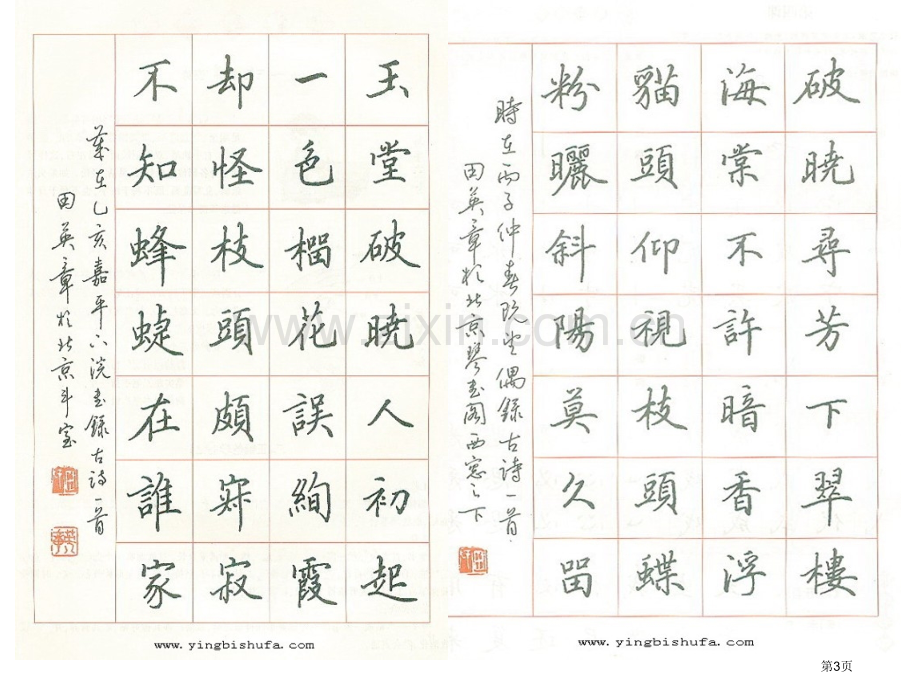 玉堂破曉人初起
一色榴花誤絢霞
却怪枝頭頗寂寂
不知蜂蜨在誰家
歲在乙亥嘉平下浣書錄古詩一首
田英章於北京斗室
www.yingbishufa.com
破曉尋芳下翠樓
海棠不許暗香浮
貓頭仰視枝頭蝶
粉曬斜陽莫久留
時在丙子仲春偶錄古詩一首
田英章於北京琴書閣西窓之下
www.yingbishufa.com
第3页